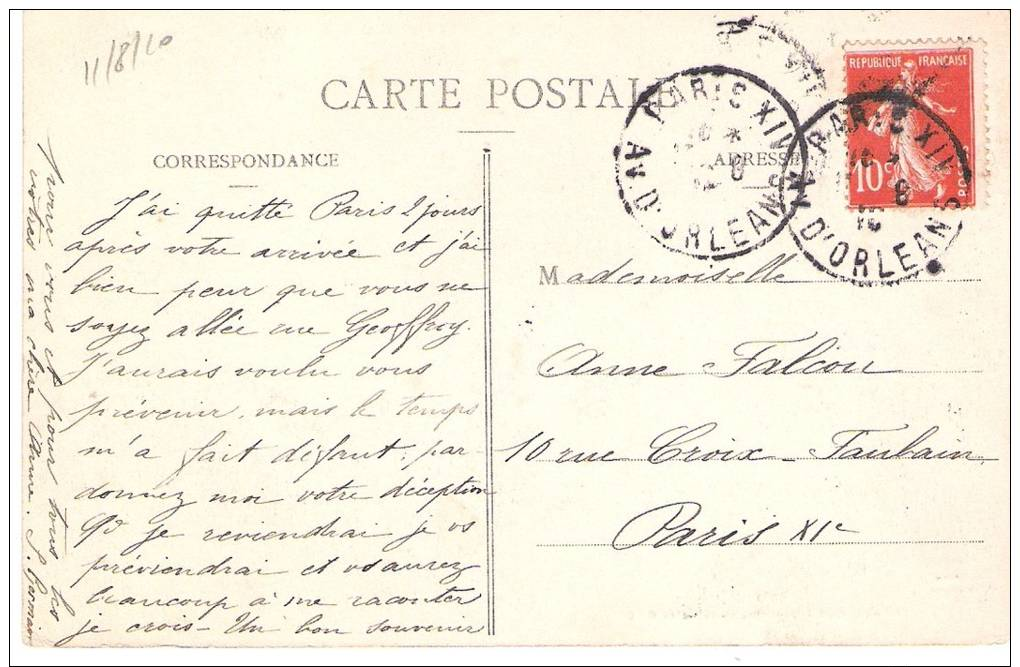 11/8/10
CARTE POSTALE
CORRESPONDANCE
ADRESSE
REPUBLIQUE FRANÇAISE
10c
POSTES
PARIS XIV
AV. D'ORLEANS
PARIS XIV
AV. D'ORLEANS
J'ai quitté Paris 2 jours
après votre arrivée et j'ai
bien peur que vous ne
soyez allée rue Geoffroy.
J'aurais voulu vous
prévenir, mais le temps
m'a fait défaut, par-
donnez moi votre déception
Qd je reviendrai je vs
préviendrai et vs aurez
beaucoup à me raconter
je crois - Un bon souvenir
pour vous et pour tous les
votres ma chère Anne. S. Germain
Mademoiselle
Anne Falcou
10 rue Croix-Faubain
Paris XIe